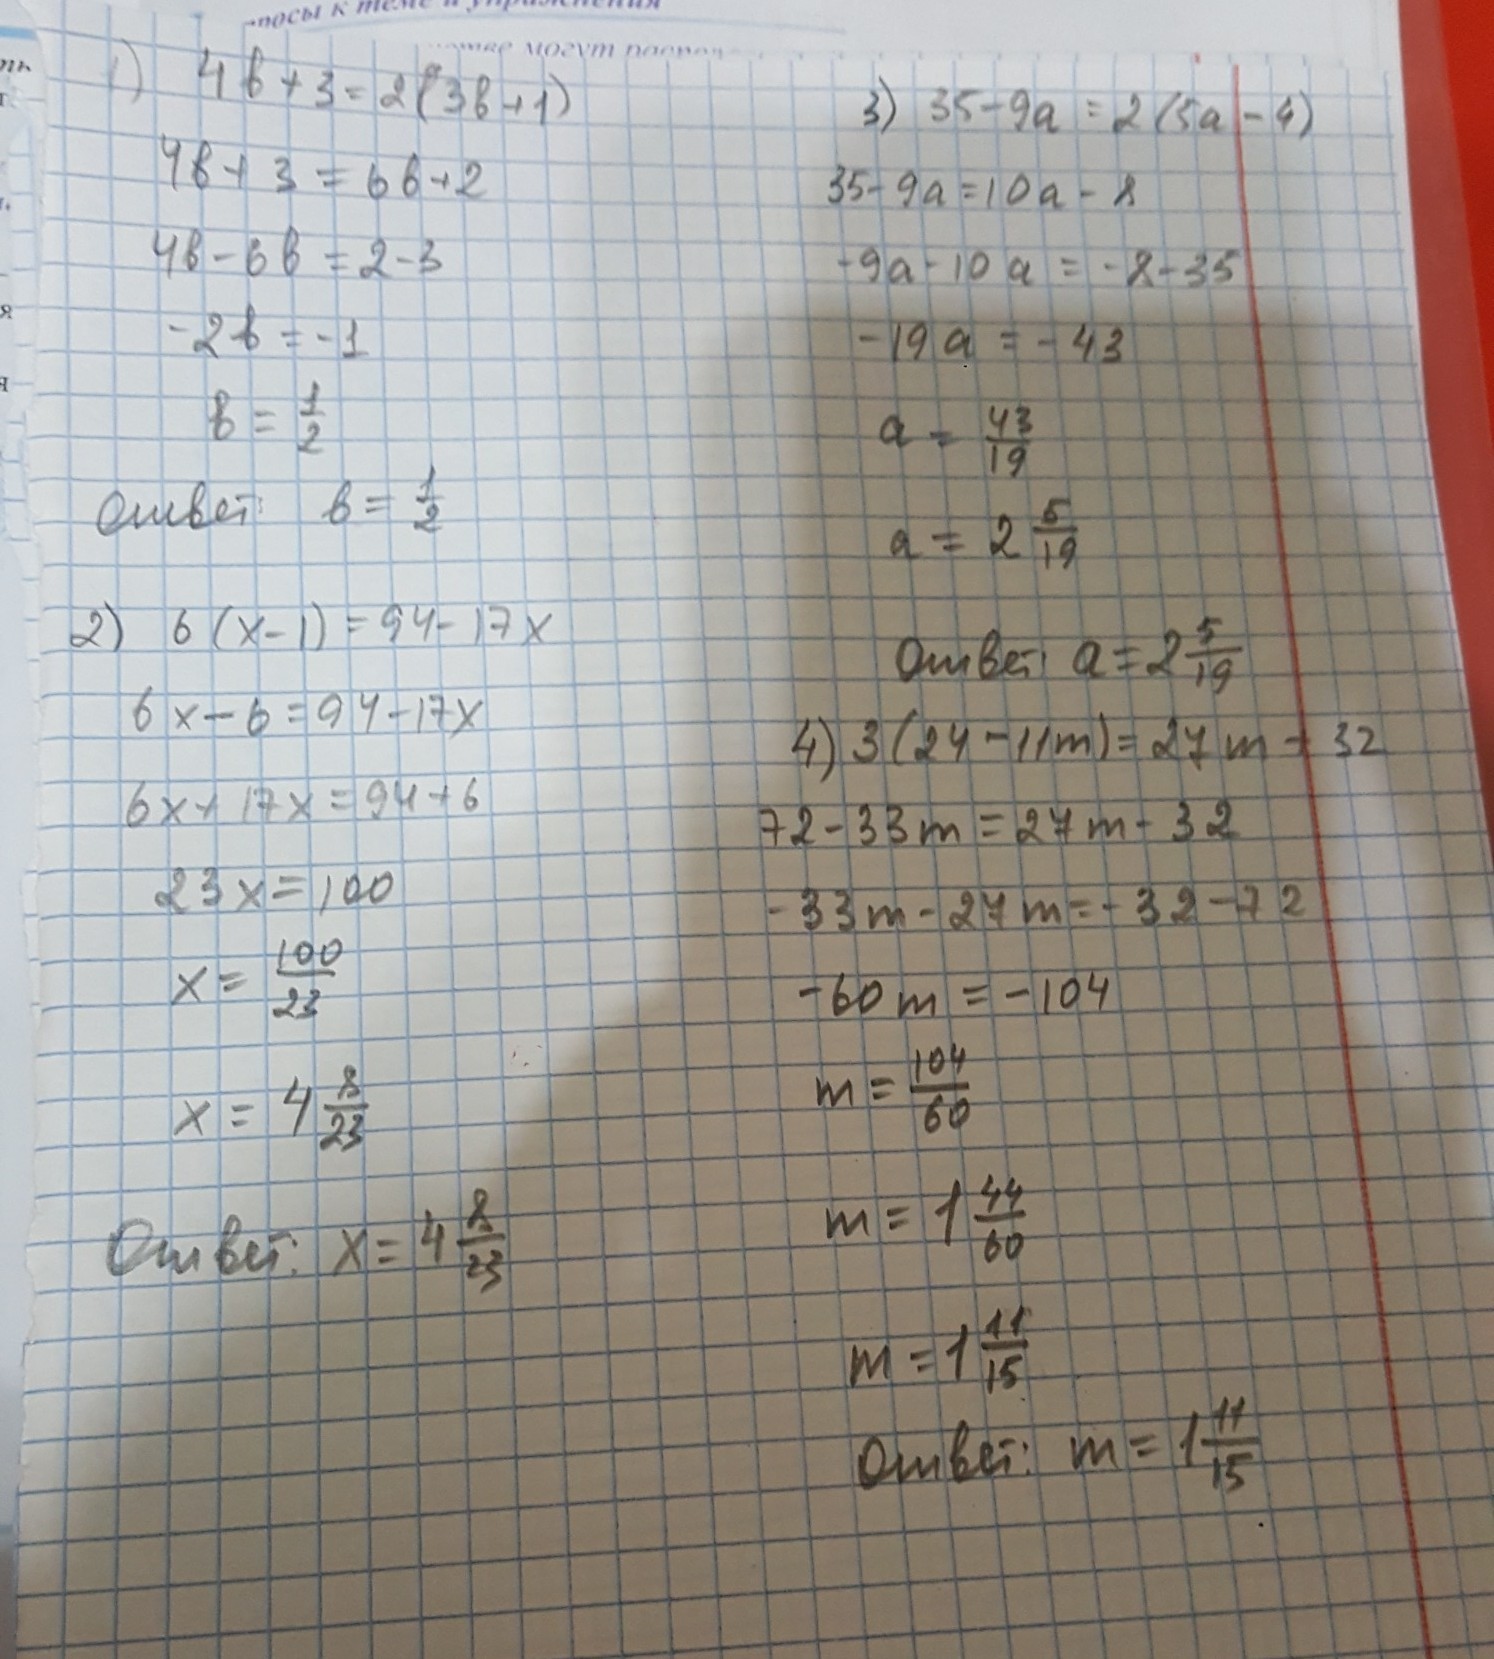 к теме и упражнения
могут
1) 4в+3=2(3в+1)
4в+3=6в+2
4в-6в=2-3
-2в=-1
в=1/2
Ответ: в=1/2
2) 6(x-1)=94-17x
6x-6=94-17x
6x+17x=94+6
23x=100
x=100/23
x=4 8/23
Ответ: x=4 8/23
3) 35-9a=2(5a-4)
35-9a=10a-8
-9a-10a=-8-35
-19a=-43
a=43/19
a=2 5/19
Ответ: a=2 5/19
4) 3(24-11m)=27m-32
72-33m=27m-32
-33m-27m=-32-72
-60m=-104
m=104/60
m=1 44/60
m=1 11/15
Ответ: m=1 11/15